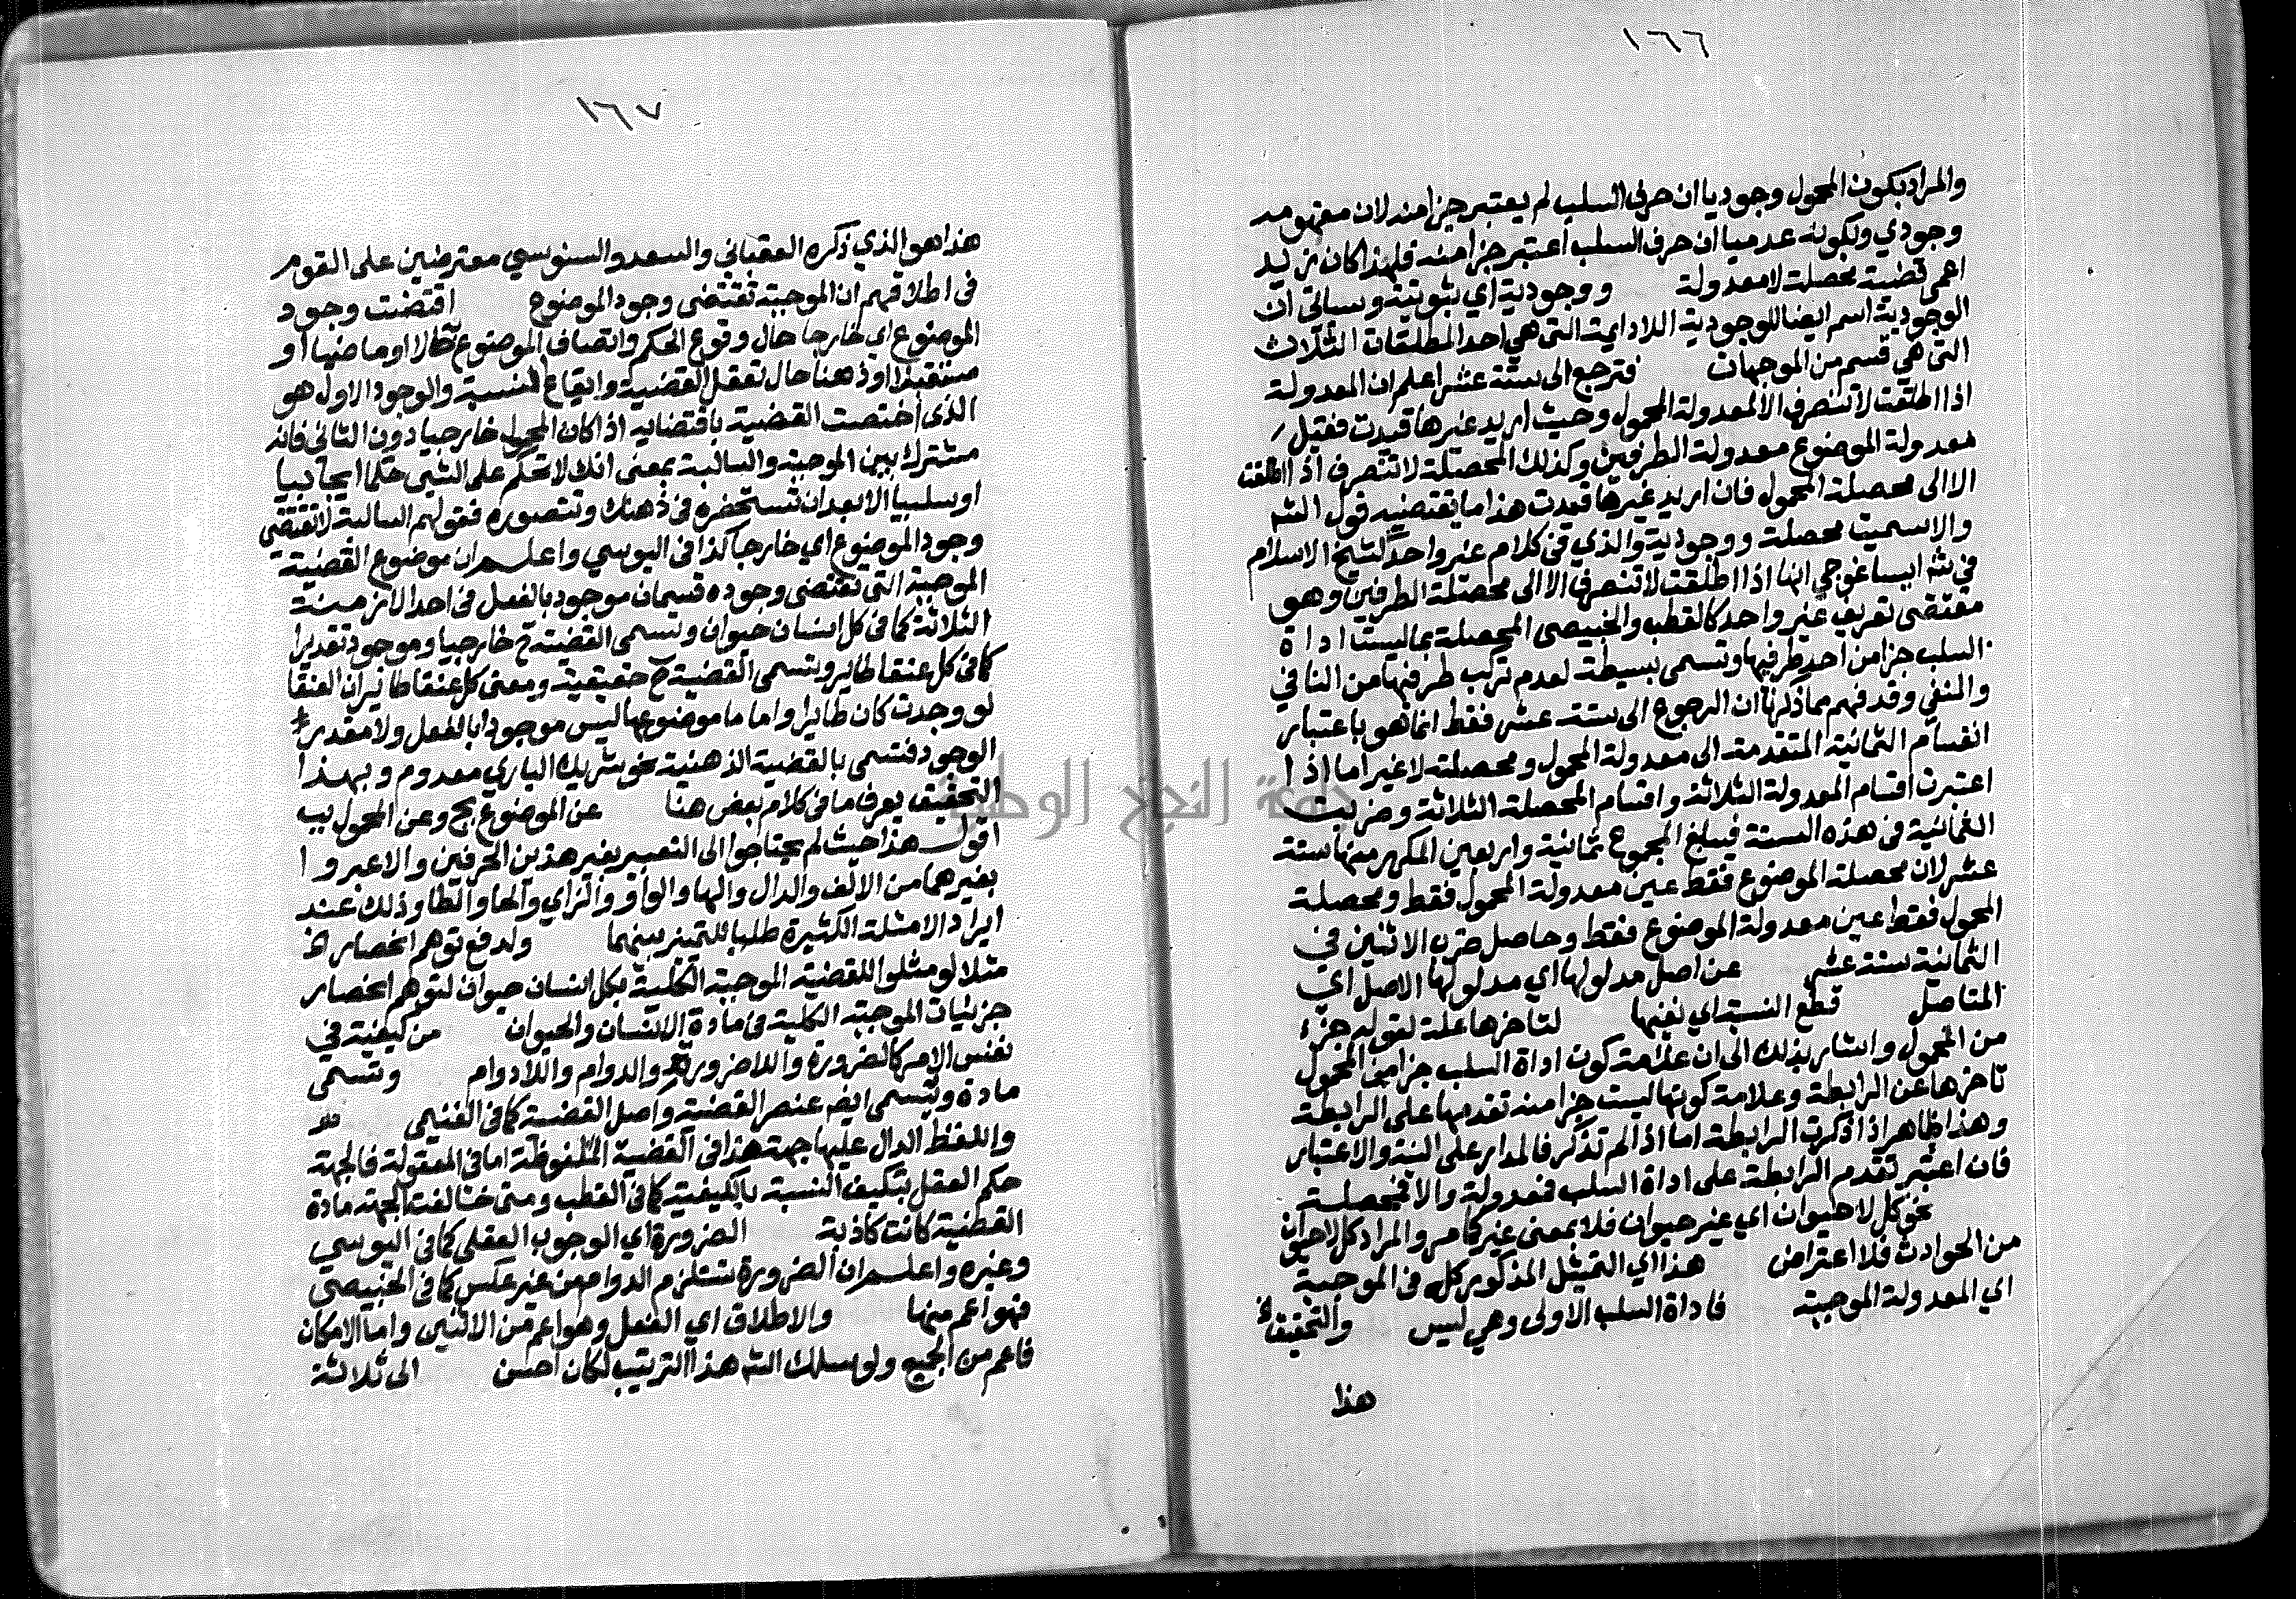 ١٦٦
والمراد بكون المحمول وجوديا ان حرف السلب لم يعتبر جزا منه لان مفهومه
وجودي وبكونه عدميا ان حرف السلب اعتبر جزا منه فلهذا كان زيد
اعمى قضية محصلة لا معدولة ووجودية اي ثبوتية وسياتى ان
الوجودية اسم ايضا للوجودية اللادايمة التى هي احد المطلقات الثلاث
التى هي قسم من الموجهات فترجع الى ستة عشر اعلم ان المعدولة
اذا اطلقت لا تنصرف الا لمعدولة المحمول وحيث اريد غيرها قيدت فقيل
معدولة الموضوع معدولة الطرفين وكذلك المحصلة لا تنصرف اذا اطلقت
الا الى محصلة المحمول فان اريد غيرها قيدت هذا ما يقتضيه قول الشه
والا سميت محصلة ووجودية والذي فى كلام غير واحد كشيخ الاسلام
في شه ايساغوجي انها اذا اطلقت لا تنصرف الا الى محصلة الطرفين وهو
مقتضى تعريف غير واحد كالقطب والخبيصى المحصلة بما ليست اداة
السلب جزا من احد طرفيها وتسمى بسيطة لعدم تركب طرفيها من النافي
والنفي وقد فهم مما ذكرنا ان الرجوع الى ستة عشر فقط انما هو باعتبار
انقسام الثمانية المتقدمة الى معدولة المحمول ومحصلته لا غير اما اذا
اعتبرت اقسام المعدولة الثلاثة واقسام المحصلة الثلاثة وضربت
الثمانية فى هذه الستة فيبلغ المجموع ثمانية واربعين المكرر منها ستة
عشر لان محصلة الموضوع فقط عين معدولة المحمول فقط ومحصلة
المحمول فقط عين معدولة الموضوع فقط وحاصل ضرب الاثنين في
الثمانية ستة عشر عن اصل مدلولها اي مدلولها الاصل اي
المتاصل قطع النسبة اي نفيها لتاخرها علة لقوله جزء
من المحمول واشار بذلك الى ان علامة كون اداة السلب جزا من المحمول
تاخرها عن الرابطة وعلامة كونها ليست جزا منه تقدمها على الرابطة
وهذا ظاهر اذا ذكرت الرابطة اما اذا لم تذكر فالمدار على النية والاعتبار
فان اعتبر تقدم الرابطة على اداة السلب فمعدولة والا فمحصلة
نحو كل لا حيوان اي غير حيوان فلا بمعنى غير كما مر والمراد كل لا حيوان
من الحوادث فلا اعتراض هذا اي التمثيل المذكور كله فى الموجبة
اي المعدولة الموجبة فاداة السلب الاولى وهي ليس والتحقيق
هذا
١٦٧
هذا هو الذي ذكره العقبانى والسعد والسنوسي معترضين على القوم
فى اطلاقهم ان الموجبة تقتضى وجود الموضوع اقتضت وجود
الموضوع اي خارجا حال وقوع الحكم واتصاف الموضوع حالا او ماضيا او
مستقبلا او ذهنا حال تعقل القضية وايقاع النسبة والوجود الاول هو
الذى اختصت القضية باقتضايه اذا كان المحمول خارجيا دون الثانى فانه
مشترك بين الموجبة والسالبة بمعنى انك لا تحكم على الشيى حكما ايجابيا
او سلبيا الا بعد ان تستحضره فى ذهنك وتتصوره فقولهم السالبة لا تقتضى
وجود الموضوع اي خارجا كذا فى اليوسي واعلم ان موضوع القضية
الموجبة التى تقتضى وجوده قسمان موجود بالفعل فى احد الازمنة
الثلاثة كما فى كل انسان حيوان وتسمى القضية ح خارجيا وموجود تقديرا
كما فى كل عنقا طاير وتسمى القضية ح حقيقية ومعنى كل عنقا طاير ان العنقا
لو وجدت كان طايرا واما ما موضوعها ليس موجودا بالفعل ولا مقدر
الوجود فتسمى بالقضية الذهنية نحو شريك الباري معدوم وبهذا
التحقيق يعرف ما فى كلام بعض هنا عن الموضوع بج وعن المحمول بب
اقول هذا حيث لم يحتاجوا الى التعبير بغير هذين الحرفين والا عبروا
بغيرهما من الالف والدال والها والواو والزاي والحا والطا وذلك عند
ايراد الامثلة الكثيرة طلبا للتميز بينهما ولدفع توهم انحصار الخ
مثلا لو مثلوا للقضية الموجبة الكلية بكل انسان حيوان لتوهم انحصار
جزئيات الموجبة الكلية فى مادة الانسان والحيوان من كيفية في
نفس الامر كالضرورة واللاضرورة والدوام واللادوام وتسمى
مادة وتسمى ايضا عنصر القضية واصل القضية كما فى الغنيمى
واللفظ الدال عليها جهة هذا فى القضية الملفوظة اما فى المعقولة فالجهة
حكم العقل بتكيف النسبة بالكيفية كما فى القطب ومتى خالفت الجهة مادة
القضية كانت كاذبة الضرورة اي الوجوب العقلى كما فى اليوسي
وغيره واعلم ان الضرورة تستلزم الدوام من غير عكس كما فى الخبيصي
فهو اعم منها والاطلاق اي الفعل وهو اعم من الاثنين واما الامكان
فاعم من الجميع ولو سلك الشه هذا الترتيب لكان احسن الى ثلاثة
جامعة النجاح الوطنية